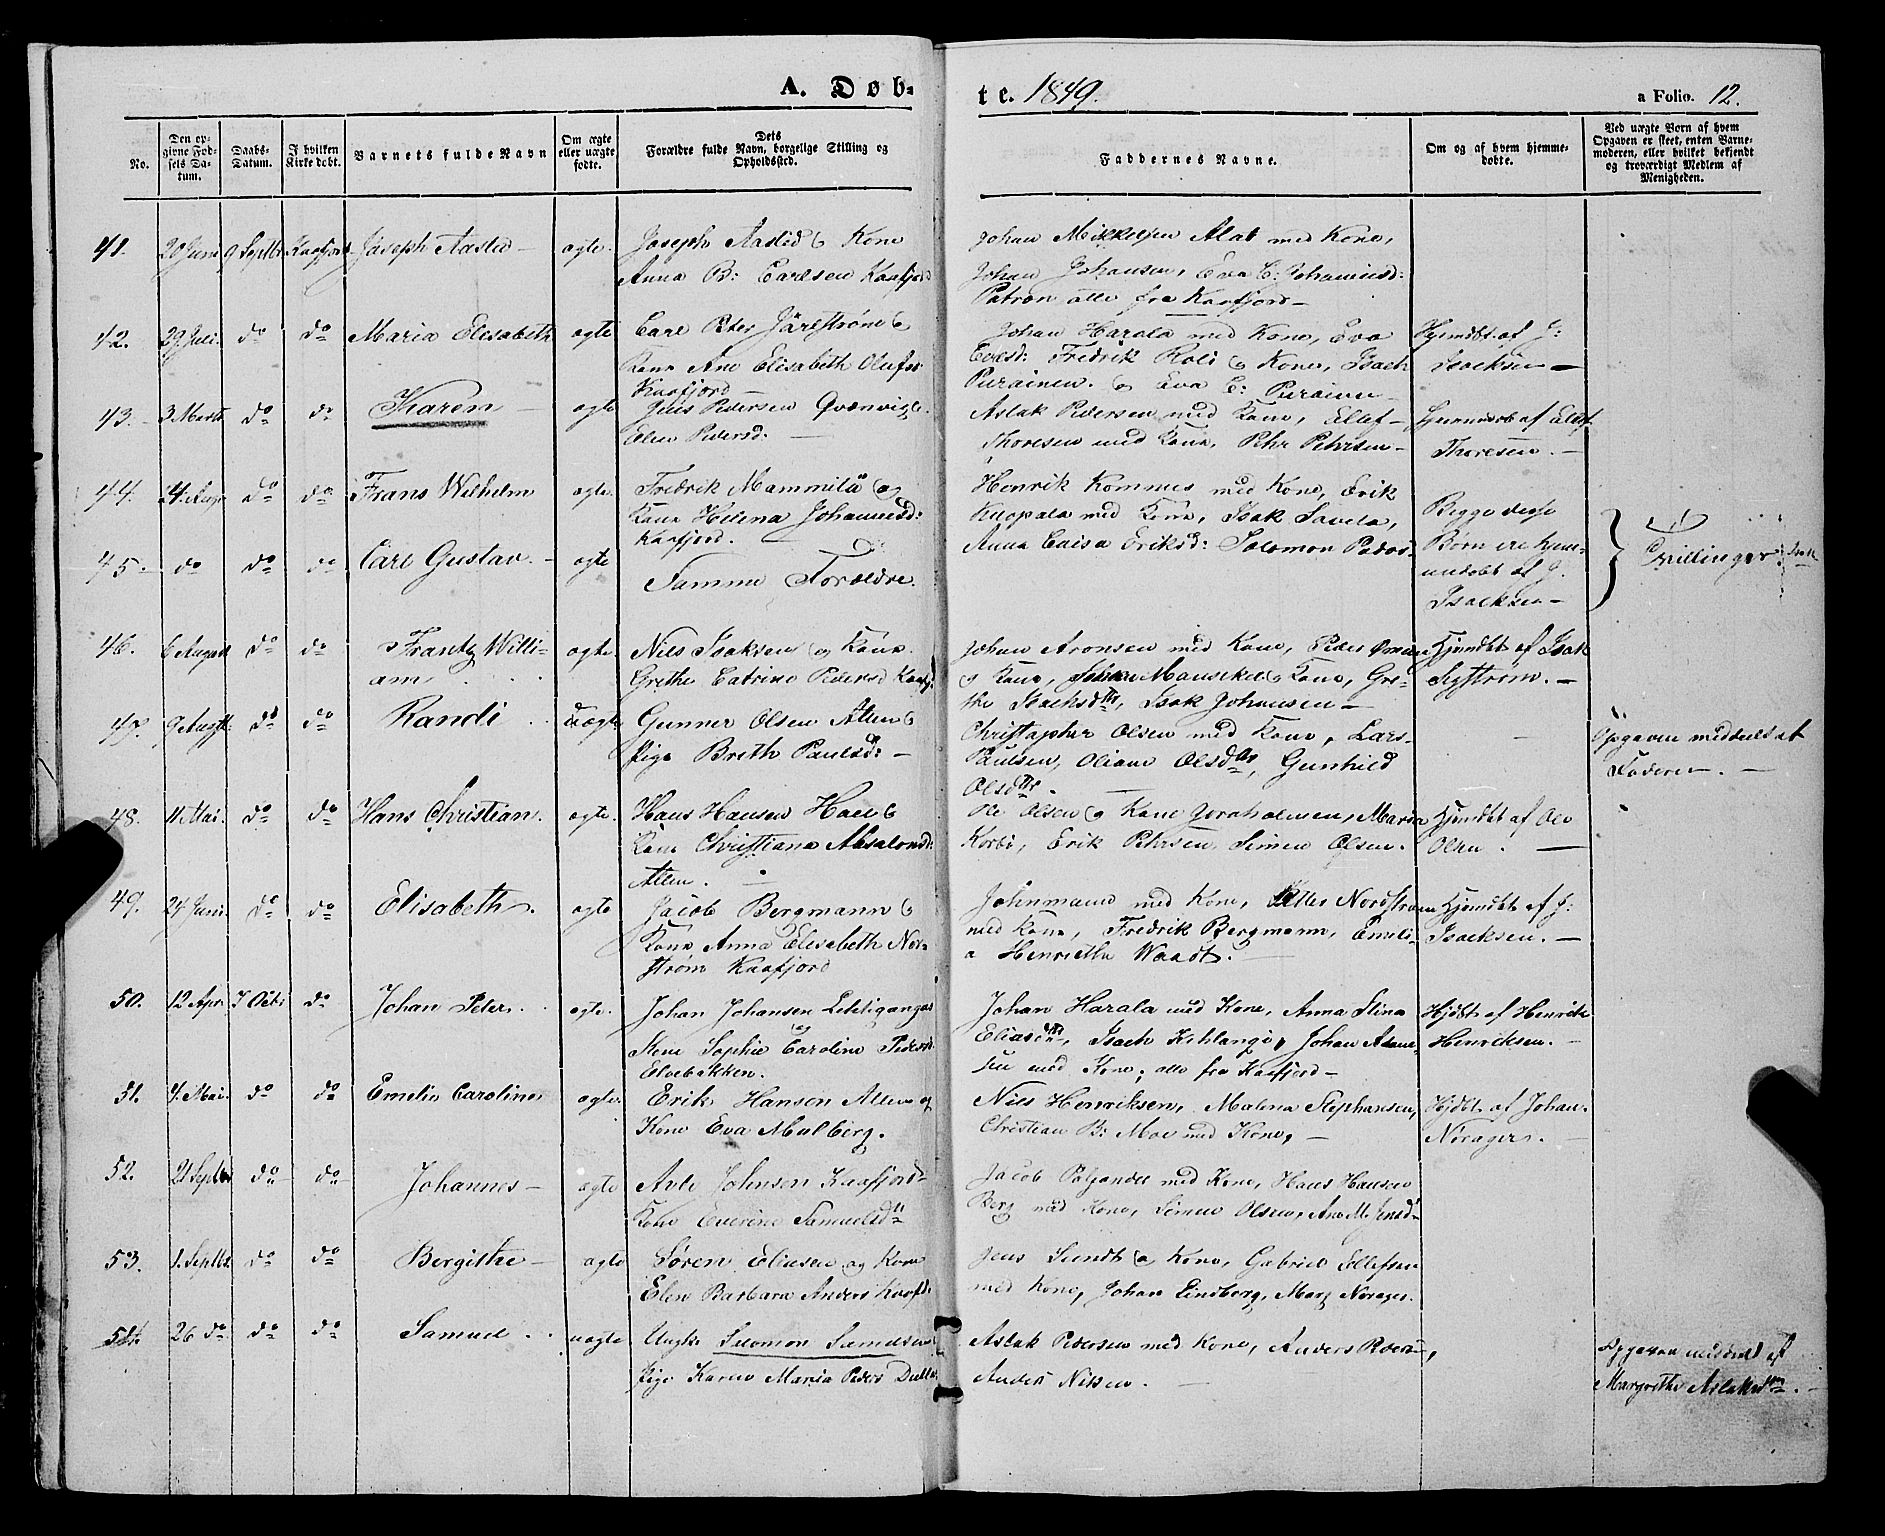 A. Døb-
te. 1849.
a Folio. 12.
No.
Den op-
givne Fød-
sels Da-
tum.
Daabs-
Datum.
I hvilken
Kirke døbt.
Barnets fulde Navn
Om ægte
eller uægte
fødte.
Dets
Forældre fulde Navn, borgelige Stilling og
Opholdssted.
Faddernes Navne.
Om og af hvem hjemme-
døbte.
Ved uægte Børn af hvem
Opgaven er skeet, enten Barne-
moderen, eller hvilket bekjendt
og troværdigt Medlem af
Menigheden.
41. 20 Juni 9 Septbr Kaafjord Joseph Aasted ægte.
Joseph Aasted & Kone
Anna B: Carlsen Kaafjord
Johan Mikkelsen Alat med Kone,
Johan Johansen, Eva C: Johannesd:
Patron alle fra Kaafjord
42. 29 Juli. do do Maria Elisabeth ægte
Carl Peter Jarlstrøm &
Kone Ane Elisabeth Olufsd
Kaafjord
Johan Harala med Kone, Eva
Fredrik Kone, Isach
Purainen. og Eva C: Purainen
Hjemdbt. af J:
Isacksen
43. 3 Marts do do Karen ægte
Jens Pedersen Qvænvig
Elen Pedersd.
Aslak Pedersen med Kone, Ellef
Thoresen med Kone, Pehr Pehrsen
Hjemmedøb af Ellef
Thoresen.
44. 24. Aug do do Frans Wilhelm ægte.
Fredrik Mammila og
Kone Helena Johannesd:
Kaafjord.
Henrik Kommes med Kone, Erik
Kuopala med Kone, Isak Savela,
Anna Caisa Eriksd: Salomon Peders
Begge disse
Børn ere hjem-
medøbt af J.
Isacksen
Tvillinger
45. do do do Carl Gustav. ægte
Samme Forældre.
46. 6 August do do Frantz Willi-
am ægte
Nils Isaksen og Kone
Grethe Catrine Pedersd Kaafj:
Johan Aronsen med Kone, Peder
& Kone, Johan & Kone, Gre-
the Isachsdtr, Isak Johansen
Hjemdbt af Isak
Sijstrom.
47. 9 Augst. do do Randi uægte
Gunner Olsen Alten &
Pige Breth Paulsd:
Christopher Olsen med Kone, Lars
Paulsen, Oliane Olsdtr, Gunhild
Olsdtr.
Opgaven meddeelt af
Faderen.
48. 11 Mai. do do Hans Christian. ægte.
Hans Hansen &
Kone Christiana Absalonsd:
Alten.
Ole Olsen & Kone Joraholmen, Maria
Korbi, Erik Pehrsen, Simen Olsen.
Hjemdbt af Ole
Olsen.
49. 24 Juni. do do Elisabeth. ægte
Jacob Bergmann &
Kone Anna Elisabeth Nor-
strøm Kaafjord
Johnmand med Kone, Peter Nordstrøm
med Kone, Fredrik Bergmann, Emeli-
a Henriette Waadt.
Hjemdbt af J:
Isacksen.
50. 12 Apr. 7 Octbr do Johan Peter. ægte.
Johan Johansen
Sophie Caroline Peders
Elvebakken.
Johan Harala med Kone, Anna Stina
Eliasdtr, Isach Kihlangi, Johan
sen med Kone, alle fra Kaafjord
Hjdbt. af Henrik
Henriksen.
51. 4. Mai. do do Emelie Caroline ægte.
Erik Hansen Alten og
Kone Eva Mulberg.
Nils Henriksen, Malena Stephansen,
Christian B: Moe med Kone,
Hjdbt. af Johan
Norager.
52. 21 Septbr do do Johannes ægte
Arle Johnsen Kaafjord
Kone Everine Samuelsd
Jacob Poljander med Kone, Hans Hansen
Berg med Kone, Simen Olsen, Ane M. Jensd
53. 1. Septbr. do do Bergithe ægte
Søren Eliesen og Kone
Elen Barbara Anders Kaafd:
Jens Sundt & Kone, Gabriel Ellefsen
med Kone, Johan Lindberg, Marg Norager.
54. 26 do. do do Samuel uægte
Ungk: Salomon Samuelsen
Pige Karen Maria Peders
Aslak Pedersen med Kone, Anders Peders,
Anders Nilsen.
Opgaven meddeelt af
Margrethe Aslaksd.